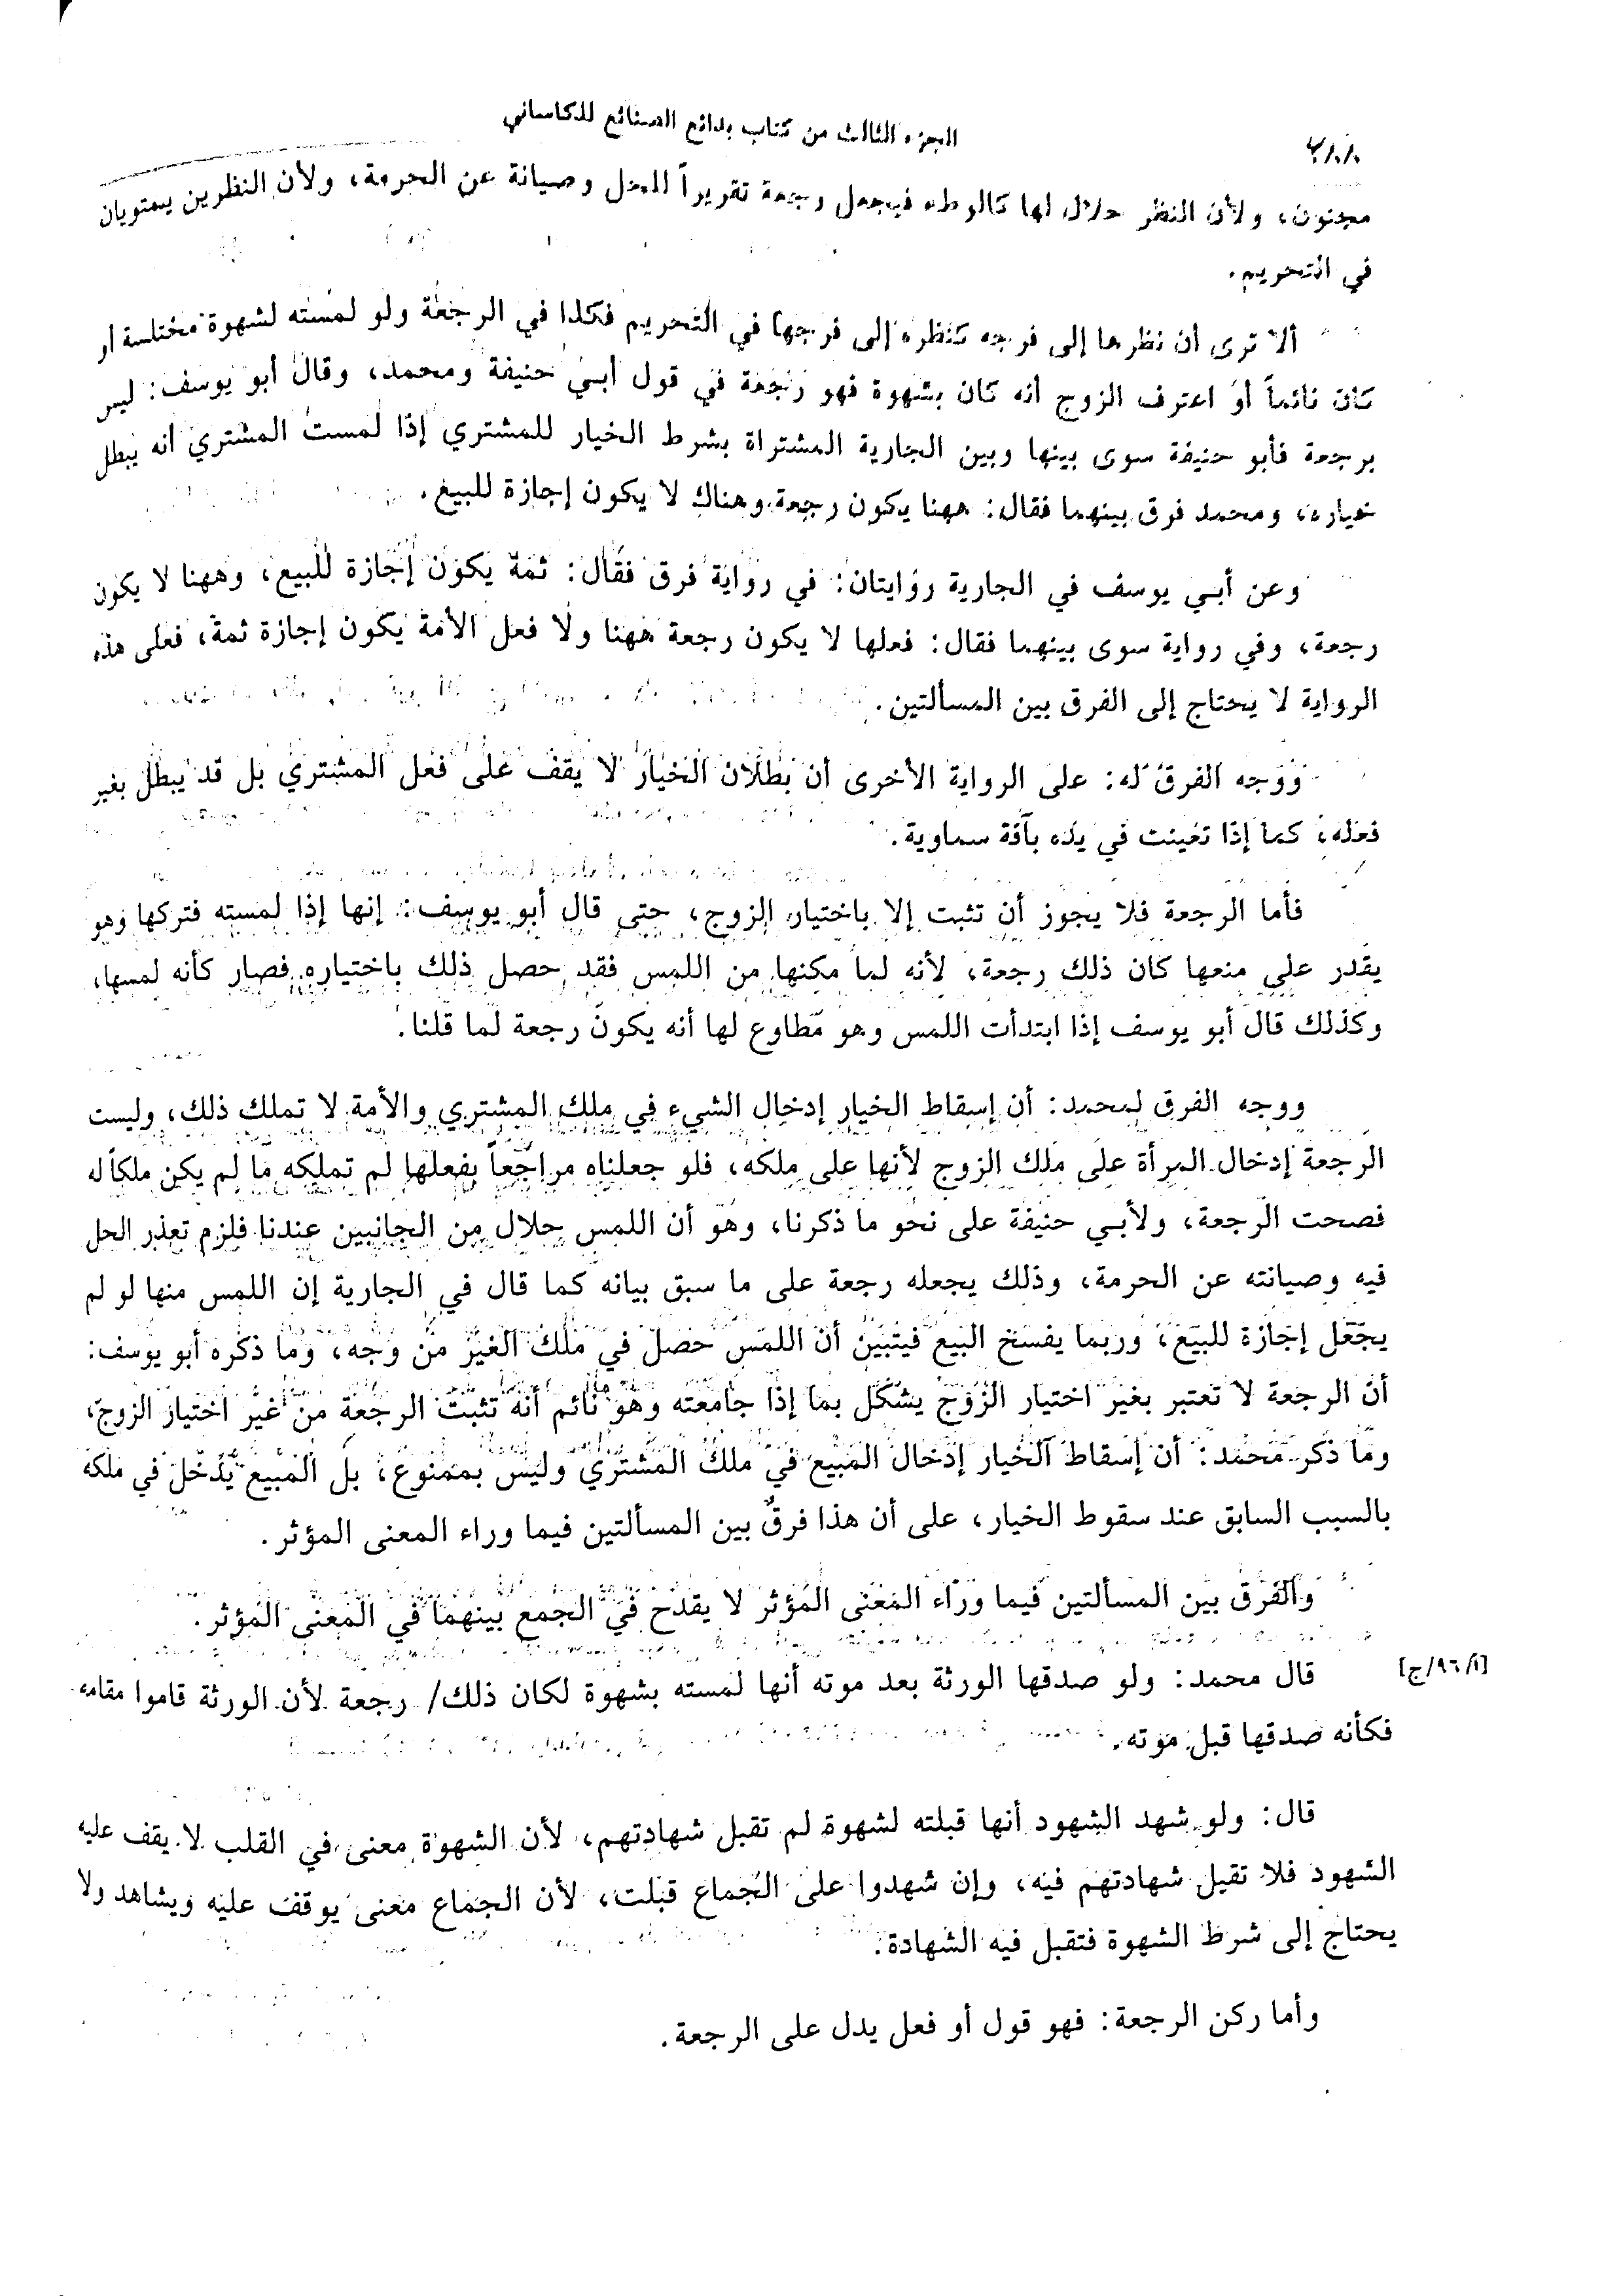 الجزء الثالث من كتاب بدائع الصنائع للكاساني
مجنون، ولأن النظر حلال لها كالوطء فيجعل رجعة تقريراً للحل وصيانة عن الحرمة، ولأن النظرين يستويان
في التحريم.
ألا ترى أن نظرها إلى فرجه كنظره إلى فرجها في التحريم فكذا في الرجعة ولو لمسته لشهوة مختلسة أو
كان نائماً أو اعترف الزوج أنه كان بشهوة فهو رجعة في قول أبي حنيفة ومحمد، وقال أبو يوسف: ليس
برجعة فأبو حنيفة سوى بينها وبين الجارية المشتراة بشرط الخيار للمشتري إذا لمست المشتري أنه يبطل
خياره، ومحمد فرق بينهما فقال: ههنا يكون رجعة وهناك لا يكون إجازة للبيع.
وعن أبي يوسف في الجارية روايتان: في رواية فرق فقال: ثمة يكون إجازة للبيع، وههنا لا يكون
رجعة، وفي رواية سوى بينهما فقال: فعلها لا يكون رجعة ههنا ولا فعل الأمة يكون إجازة ثمة، فعلى هذه
الرواية لا يحتاج إلى الفرق بين المسألتين.
ووجه الفرق له: على الرواية الأخرى أن بطلان الخيار لا يقف على فعل المشتري بل قد يبطل بغير
فعله، كما إذا تعينت في يده بآفة سماوية.
فأما الرجعة فلا يجوز أن تثبت إلا باختيار الزوج، حتى قال أبو يوسف: إنها إذا لمسته فتركها وهو
يقدر على منعها كان ذلك رجعة، لأنه لما مكنها من اللمس فقد حصل ذلك باختياره فصار كأنه لمسها،
وكذلك قال أبو يوسف إذا ابتدأت اللمس وهو مطاوع لها أنه يكون رجعة لما قلنا.
ووجه الفرق لمحمد: أن إسقاط الخيار إدخال الشيء في ملك المشتري والأمة لا تملك ذلك، وليست
الرجعة إدخال المرأة على ملك الزوج لأنها على ملكه، فلو جعلناه مراجعاً بفعلها لم تملكه ما لم يكن ملكاً له
فصحت الرجعة، ولأبي حنيفة على نحو ما ذكرنا، وهو أن اللمس حلال من الجانبين عندنا فلزم تعذر الحل
فيه وصيانته عن الحرمة، وذلك يجعله رجعة على ما سبق بيانه كما قال في الجارية إن اللمس منها لو لم
يجعل إجازة للبيع، وربما يفسخ البيع فيتبين أن اللمس حصل في ملك الغير من وجه، وما ذكره أبو يوسف:
أن الرجعة لا تعتبر بغير اختيار الزوج يشكل بما إذا جامعته وهو نائم أنه تثبت الرجعة من غير اختيار الزوج،
وما ذكر محمد: أن إسقاط الخيار إدخال المبيع في ملك المشتري وليس بممنوع، بل المبيع يدخل في ملكه
بالسبب السابق عند سقوط الخيار، على أن هذا فرقٌ بين المسألتين فيما وراء المعنى المؤثر.
والفرق بين المسألتين فيما وراء المعنى المؤثر لا يقدح في الجمع بينهما في المعنى المؤثر.
[أ/٩٦/ج]
قال محمد: ولو صدقها الورثة بعد موته أنها لمسته بشهوة لكان ذلك/ رجعة لأن الورثة قاموا مقامه
فكأنه صدقها قبل موته.
قال: ولو شهد الشهود أنها قبلته لشهوة لم تقبل شهادتهم، لأن الشهوة معنى في القلب لا يقف عليه
الشهود فلا تقبل شهادتهم فيه، وإن شهدوا على الجماع قبلت، لأن الجماع معنى يوقف عليه ويشاهد ولا
يحتاج إلى شرط الشهوة فتقبل فيه الشهادة.
وأما ركن الرجعة: فهو قول أو فعل يدل على الرجعة.